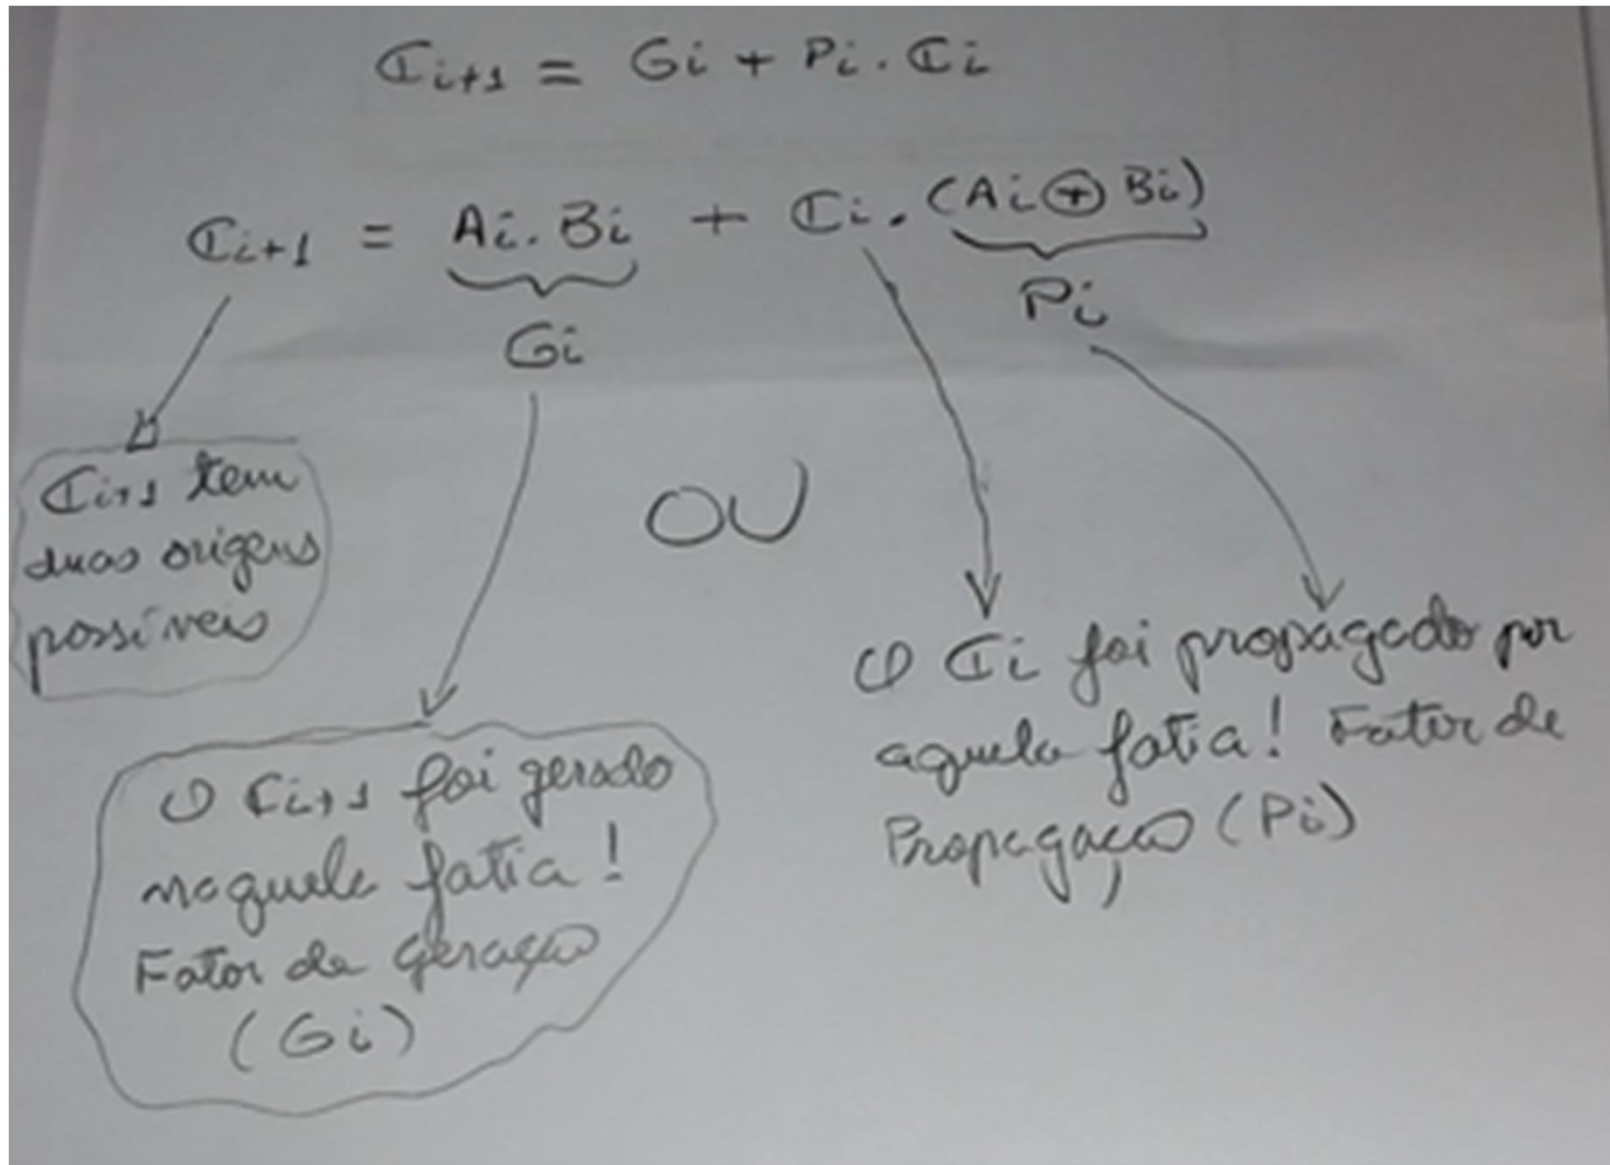 Ci+1 = Gi + Pi . Ci
Ci+1 = Ai . Bi + Ci . (Ai ⊕ Bi)
Gi
Pi
Ci+1 tem
duas origens
possíveis
OU
O Ci+1 foi gerado
naquela fatia!
Fator de geração
(Gi)
O Ci foi propagado por
aquela fatia! Fator de
Propagação (Pi)